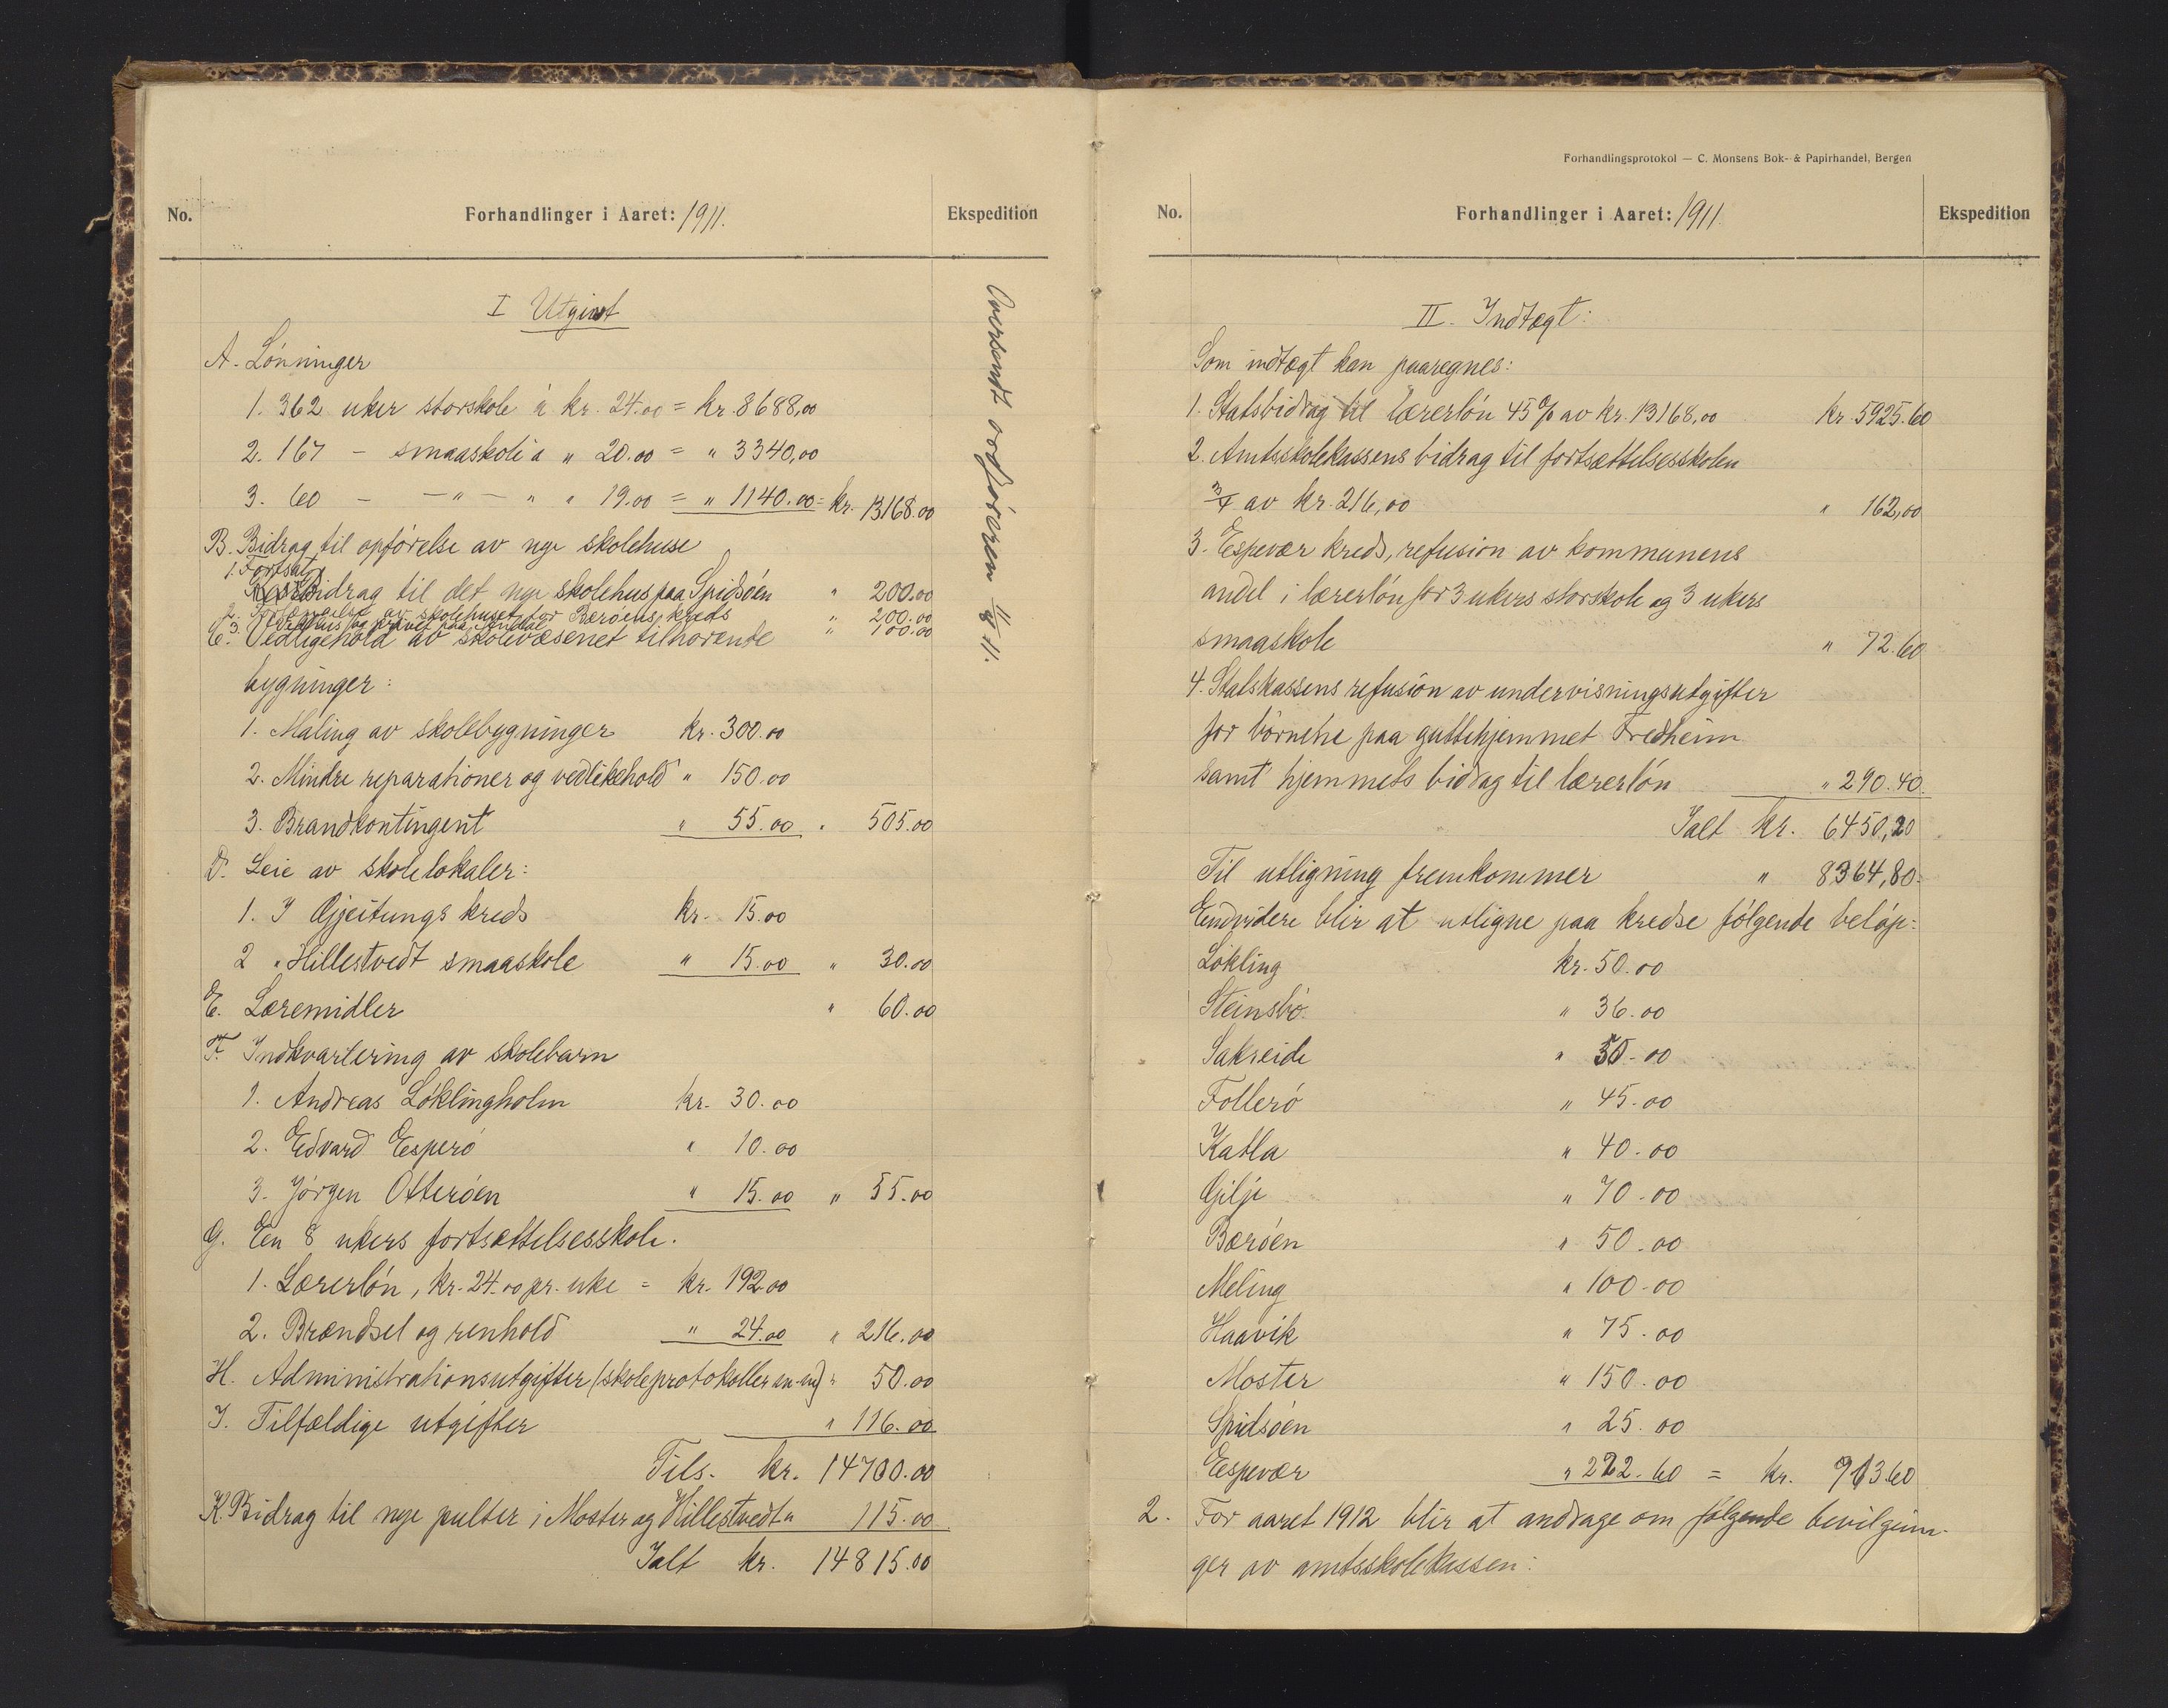 No.
Forhandlinger i Aaret: 1911.
Ekspedition
I Utgivt
A. Lønninger
1. 362 uker storskole à kr. 24.00 = kr. 8688,00
2. 167 – smaaskole à " 20.00 = " 3340,00
3. 60 – – " – " " 19.00 = " 1140.00 = kr. 13168.00
B. Bidrag til opførelse av nye skolehuse
1. Fortsat
Bidrag til det nye skolehus paa Spidsøen " 200.00
2. Forlængelse av skolehuset for Bærøens kreds " 200.00
3. Vedhus og privet paa " 100.00
C. Vedligehold av skolevæsenet tilhørende
bygninger:
1. Maling av skolebygninger kr. 300.00
2. Mindre reparationer og vedlikehold " 150.00
3. Brandkontingent " 55.00 " 505.00
D. Leie av skolelokaler:
1. I Gjeitungs kreds kr. 15.00
2 " Hillestvedt smaaskole " 15.00 " 30.00
E. Læremidler " 60.00
F. Indkvartering av skolebarn
1. Andreas Løklingholm kr. 30.00
2. Edvard Esperø " 10.00
3. Jørgen Otterøen " 15.00 " 55.00
G. En 8 ukers fortsættelsesskole.
1. Lærerløn, kr. 24.00 pr. uke = kr. 192.00
2. Brændsel og renhold " 24.00 " 216.00
H. Administrationsutgifter (skoleprotokoller m.m) " 50.00
I. Tilfældige utgifter " 116.00
Tils. kr. 14700.00
K. Bidrag til nye pulter i Moster og Hillestvedt " 115.00
Ialt kr. 14815.00
Oversendt ordføreren 11/8 11.
Forhandlingsprotokol — C. Monsens Bok- & Papirhandel, Bergen
No.
Forhandlinger i Aaret: 1911
Ekspedition
II. Indtægt:
Som indtægt kan paaregnes:
1. Statsbidrag til lærerløn 45 % av kr. 13168,00 kr. 5925.60
2. Amtsskolekassens bidrag til fortsættelsesskolen
3/4 av kr. 216,00 " 162,00
3. Espevær kreds, refusion av kommunens
andel i lærerløn for 3 ukers storskole og 3 ukers
smaaskole " 72.60
4. Statskassens refusion av undervisningsutgifter
for børnene paa guttehjemmet Fredheim
samt hjemmets bidrag til lærerløn " 290.40.
Ialt kr. 6450,20
Til utligning fremkommer " 8364,80.
Endvidere blir at utligne paa kredse følgende beløp:
Løkling kr. 50.00
Steinsbø. " 36.00
Sakseide " 50.00
Follerø " 45.00
Katla " 40.00
Gilje " 70.00
Bærøen " 50.00
Meling " 100.00
Haavik " 75.00
Moster " 150.00
Spidsøen " 25.00
Espevær " 222.60 = kr. 913.60
2. For aaret 1912 blir at andrage om følgende bevilgnin-
ger av amtsskolekassen: